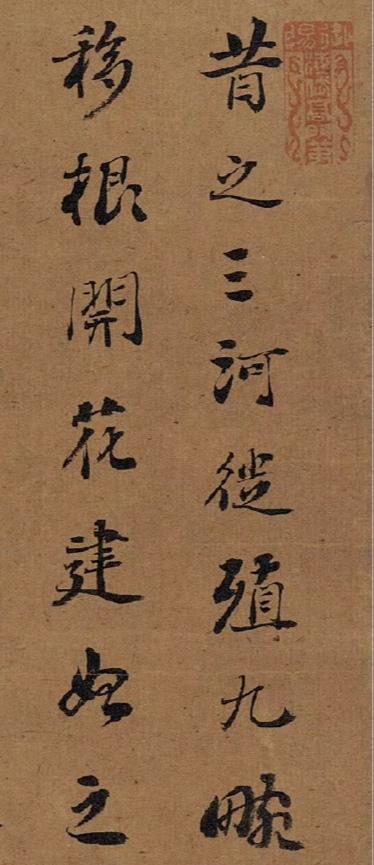 昔之三河徙殖九畹
移根開花建始之